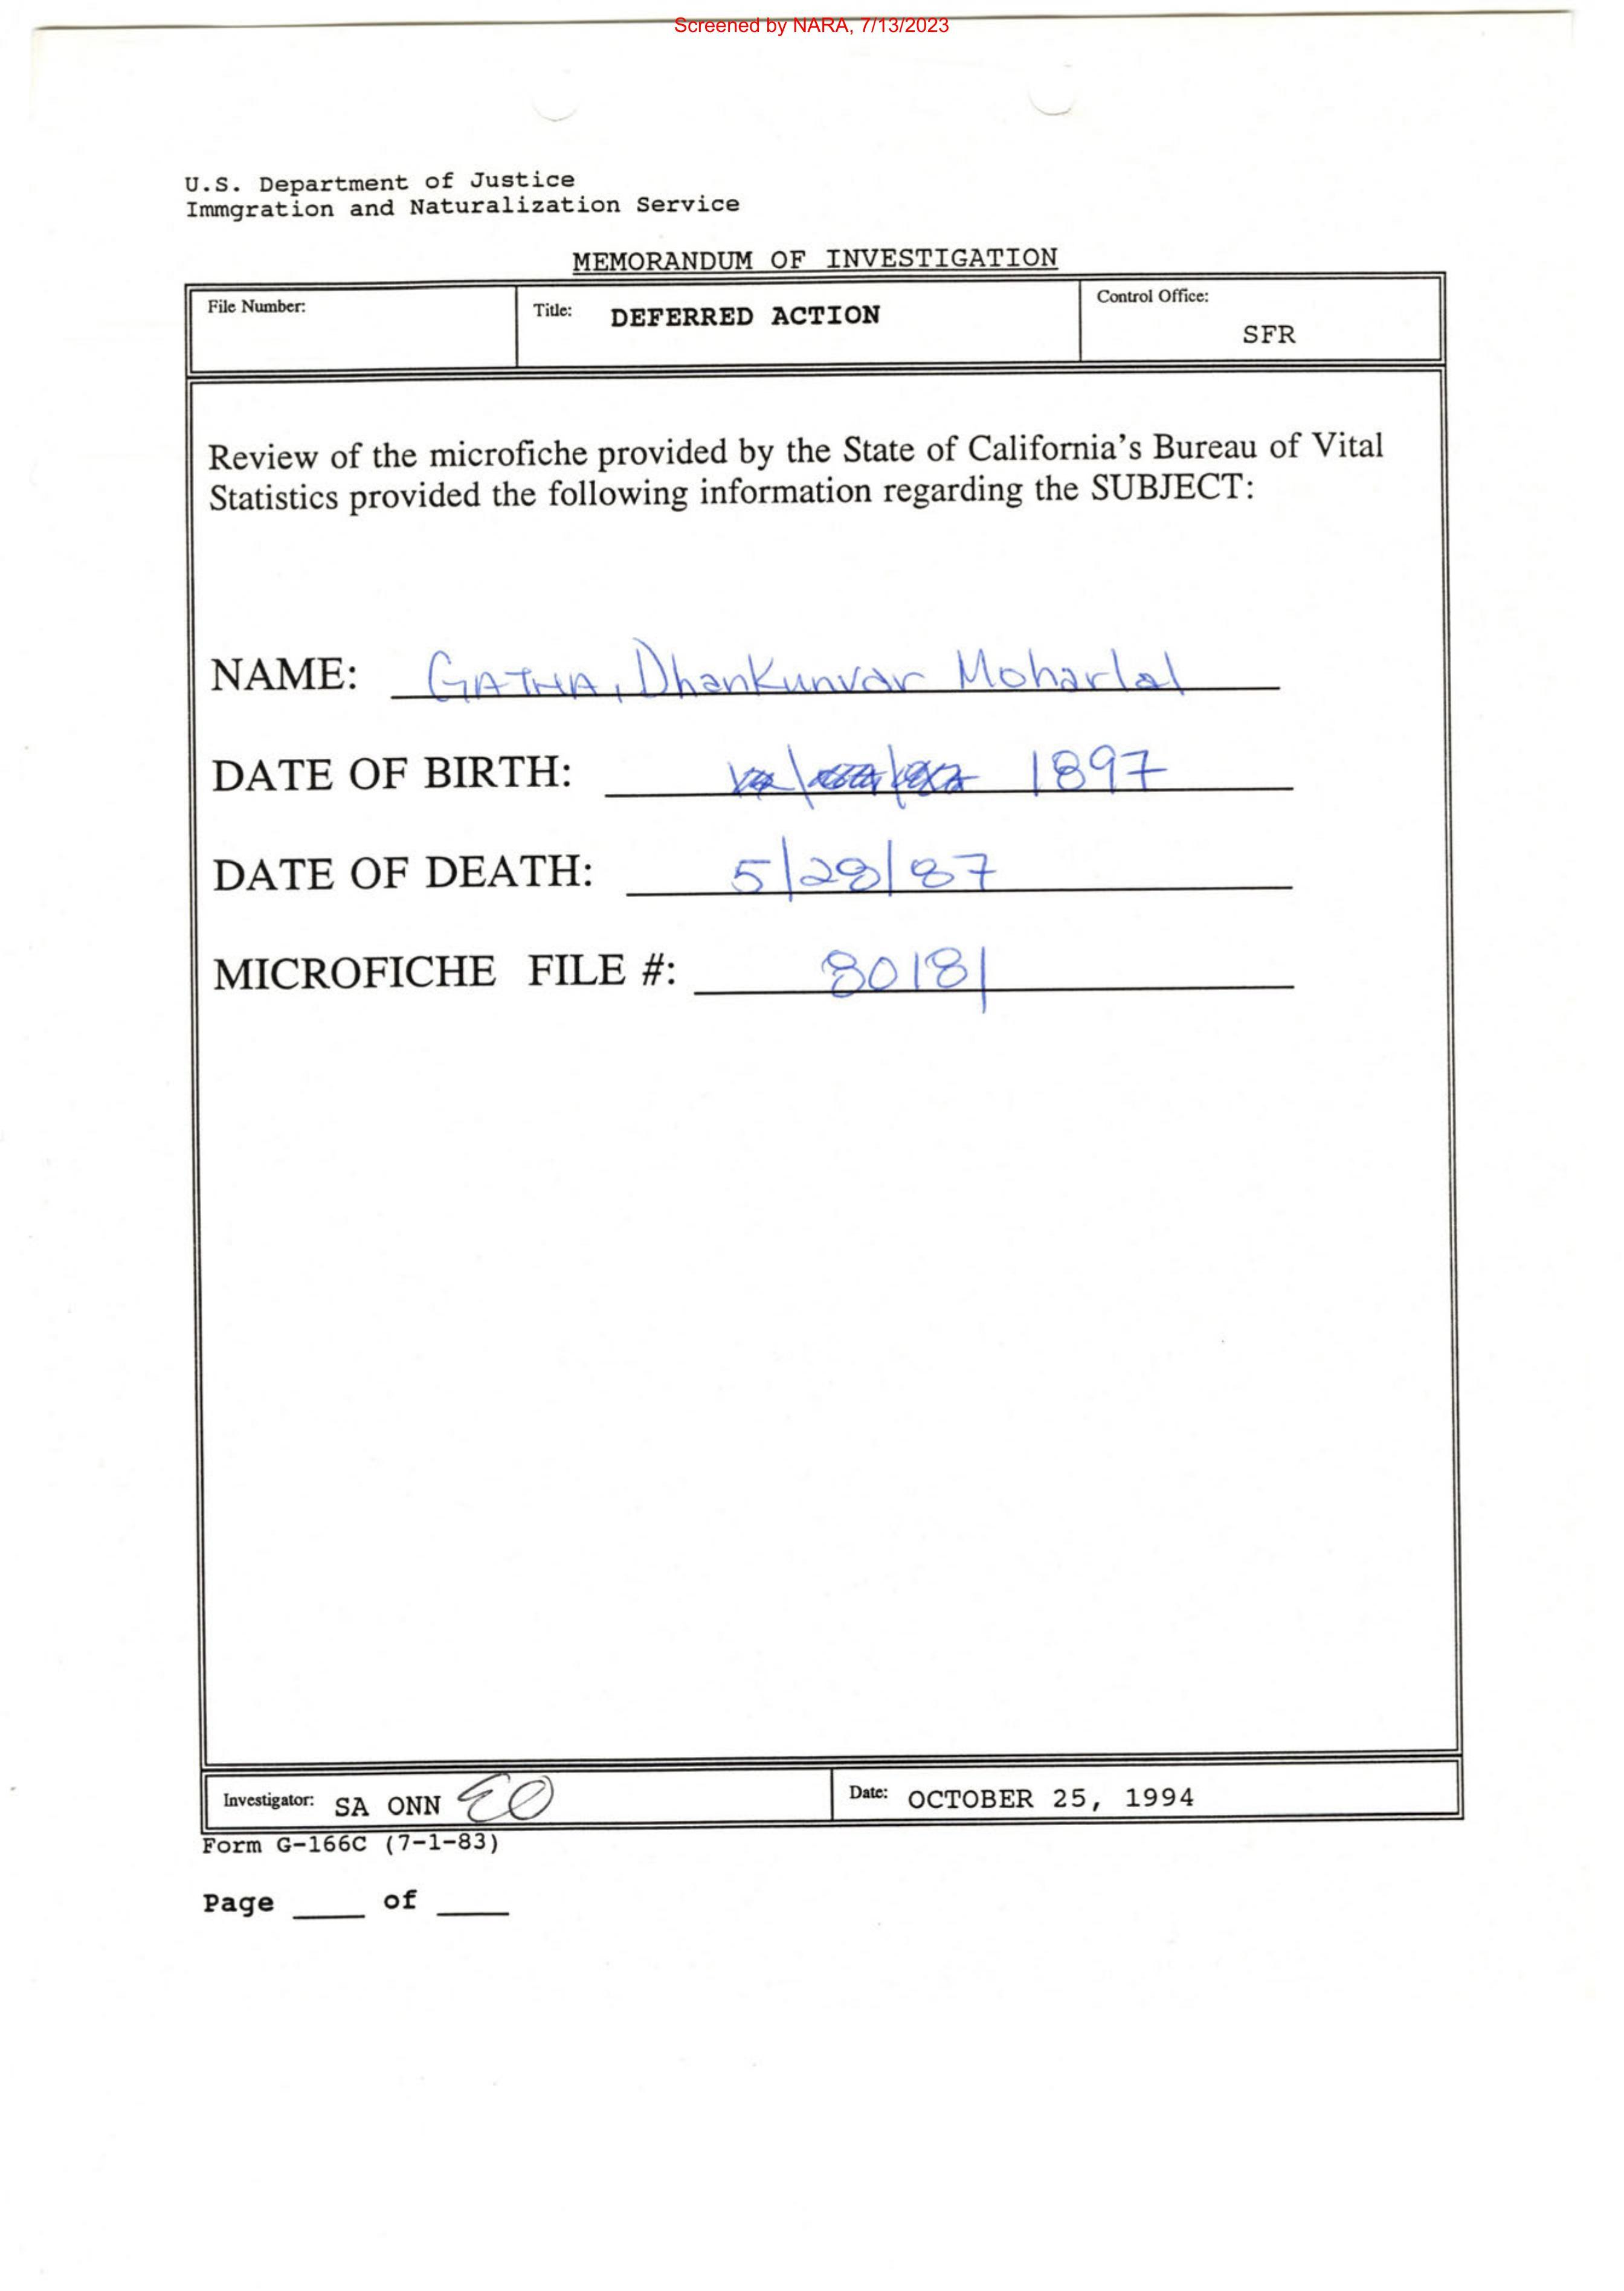 Screened by NARA, 7/13/2023
U.S. Department of Justice
Immgration and Naturalization Service
MEMORANDUM OF INVESTIGATION
File Number:
Title: DEFERRED ACTION
Control Office:
SFR
Review of the microfiche provided by the State of California's Bureau of Vital
Statistics provided the following information regarding the SUBJECT:
NAME: GATHA, Dhankunvar Moharlal
DATE OF BIRTH: 1897
DATE OF DEATH: 5/28/87
MICROFICHE FILE #: 80181
Investigator: SA ONN EO
Date: OCTOBER 25, 1994
Form G-166C (7-1-83)
Page ____ of ____